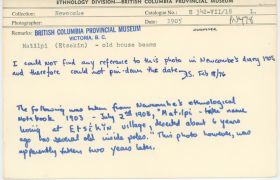 ETHNOLOGY DIVISION—BRITISH COLUMBIA PROVINCIAL MUSEUM
Collector Newcombe Catalogue No. E 342-VII/18
Date 1905
Remarks: BRITISH COLUMBIA PROVINCIAL MUSEUM
VICTORIA, B. C.
Matilpi (Etsekin) - old house beams
I could not find any reference to this photo in Newcombe's diary 1905
and therefore could not pin-down the date. JS. Feb 11/76
The following was taken from Newcombe's ethnological
Notebook 1903 - July 2nd 1903, "Matilpi - take name
living at ETSEKIN village, deserted about 6 years
ago has several old inside poles." This photo however, was
apparently taken two years later.